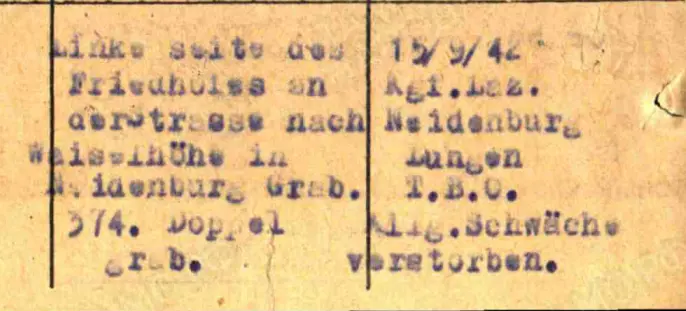 Linke seite des
Friedhofes an
derStrasse nach
Waiselhöhe in
Neidenburg Grab.
374. Doppel
grab.
15/9/42
Kgf.Laz.
Neidenburg
Lungen
T.B.O.
Allg.Schwäche
verstorben.